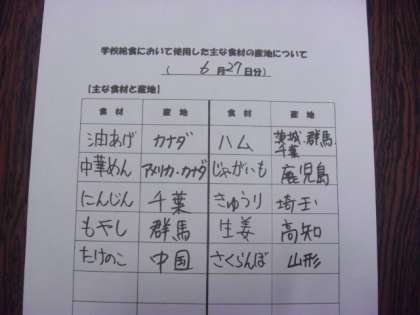 学校給食において使用した主な食材の産地について
( 6月27日分)
【主な食材と産地】
食材 産地 食材 産地
油あげ カナダ ハム 茨城・群馬・千葉
中華めん アメリカ・カナダ じゃがいも 鹿児島
にんじん 千葉 きゅうり 埼玉
もやし 群馬 生姜 高知
たけのこ 中国 さくらんぼ 山形